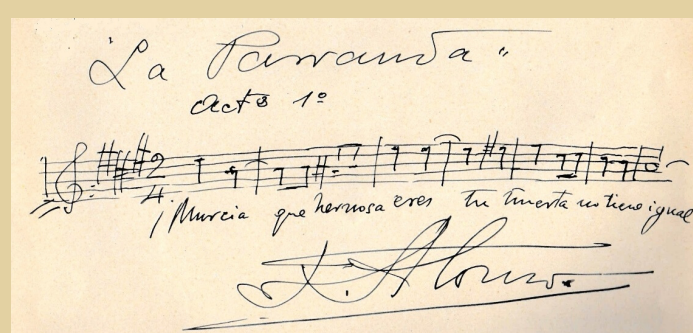 "La Parranda"
Acto 1º
2
4
¡Murcia que hermosa eres tu huerta no tiene igual
F. Alonso